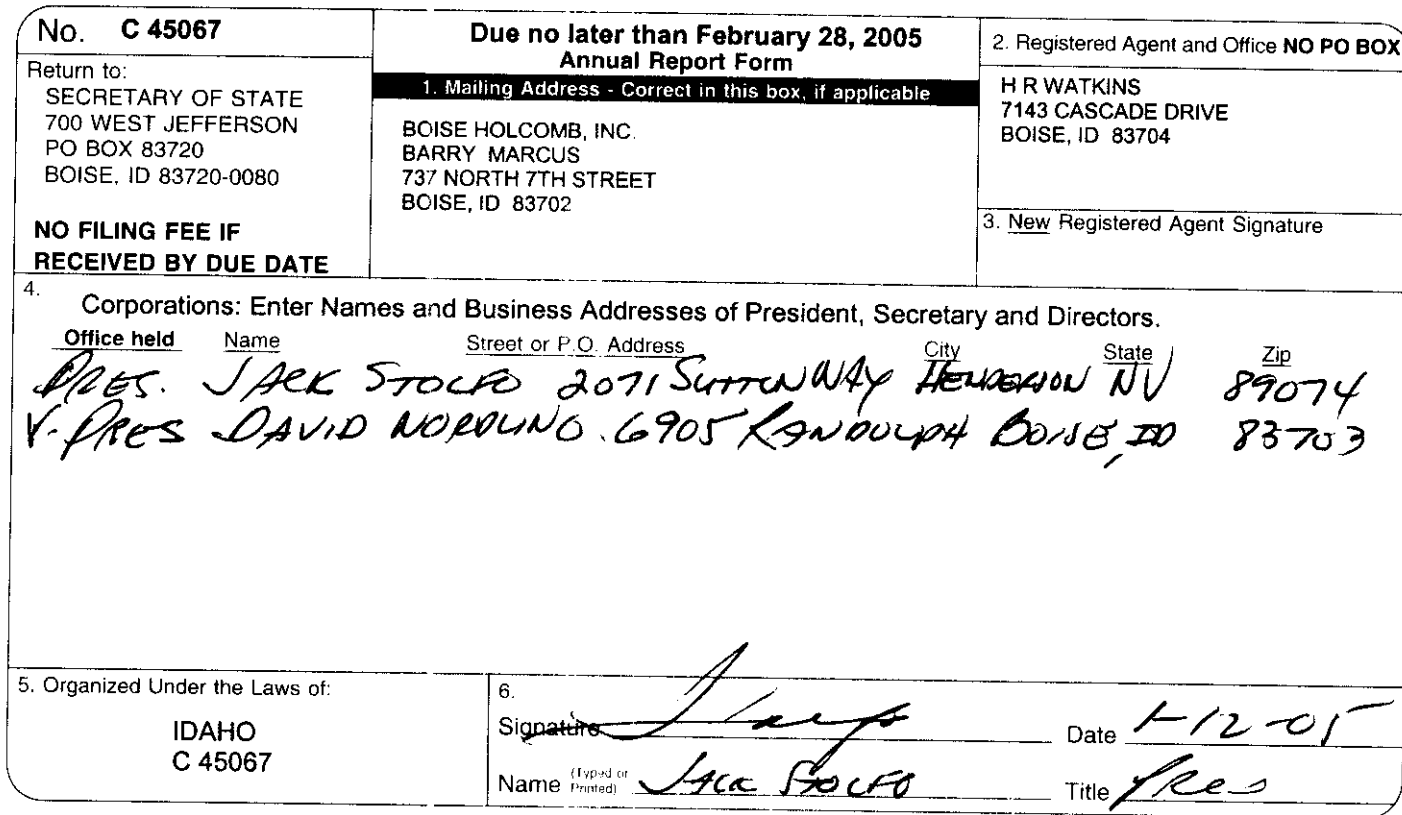 No. C 45067
Return to:
SECRETARY OF STATE
700 WEST JEFFERSON
PO BOX 83720
BOISE, ID 83720-0080
NO FILING FEE IF
RECEIVED BY DUE DATE
Due no later than February 28, 2005
Annual Report Form
1. Mailing Address - Correct in this box, if applicable
BOISE HOLCOMB, INC.
BARRY MARCUS
737 NORTH 7TH STREET
BOISE, ID 83702
2. Registered Agent and Office NO PO BOX
H R WATKINS
7143 CASCADE DRIVE
BOISE, ID 83704
3. New Registered Agent Signature
4.
Corporations: Enter Names and Business Addresses of President, Secretary and Directors.
Office held Name Street or P.O. Address City State Zip
PRES. JACK STOLFO 2071 SUTTON WAY HENDERSON NV 89074
V-PRES DAVID NORDLING 6905 RANDOLPH BOISE, ID 83703
5. Organized Under the Laws of:
IDAHO
C 45067
6.
Signature Date 1-12-05
Name (Typed or Printed) JACK STOLFO Title Pres